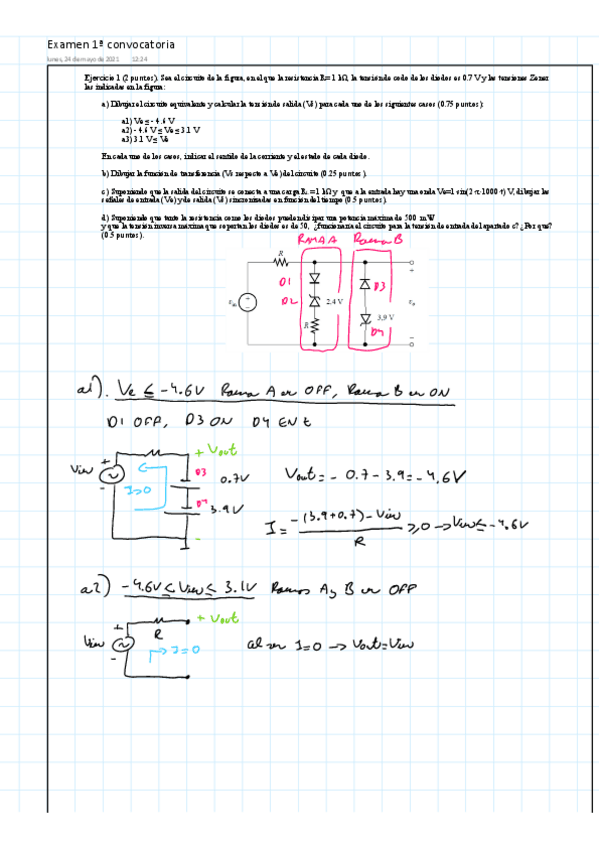 Examen 1ª convocatoria
lunes, 24 de mayo de 2021 12:24
Ejercicio 1 (2 puntos). Sea el circuito de la figura, en el que la resistencia R= 1 kΩ, la tensión de codo de los diodos es 0.7 V y las tensiones Zener
las indicadas en la figura:
a) Dibujar el circuito equivalente y calcular la tensión de salida (Vs) para cada uno de los siguientes casos (0.75 puntos):
a1) Ve ≤ - 4.6 V
a2) - 4.6 V ≤ Ve ≤ 3.1 V
a3) 3.1 V ≤ Ve
En cada uno de los casos, indicar el sentido de la corriente y el estado de cada diodo.
b) Dibujar la función de transferencia (Vs respecto a Ve) del circuito (0.25 puntos).
c) Suponiendo que la salida del circuito se conecta a una carga RL = 1 kΩ y que a la entrada hay una onda Ve=1 sin(2 π 1000 t) V, dibujar las
señales de entrada (Ve) y de salida (Vs) sincronizadas en función del tiempo (0.5 puntos).
d) Suponiendo que tanto la resistencia como los diodos pueden disipar una potencia máxima de 500 mW
y que la tensión inversa máxima que soportan los diodos es de 50, ¿funcionaría el circuito para la tensión de entrada del apartado c? ¿Por qué?
(0.5 puntos).
RAMA A Rama B
R
D1 D3
D2 2,4 V
3,9 V
R D4
a1). Ve ≤ -4.6V Rama A en OFF, Rama B en ON
D1 OFF, D3 ON D4 EN Z
+ Vout
Vin + D3 0.7V Vout = - 0.7 - 3.9 = - 4,6V
I>0 D4 3.9V
I = -(3.9+0.7) - Vin / R ≥ 0 → Vin ≤ -4.6V
a2) -4.6V ≤ Vin ≤ 3.1V Ramas A y B en OFF
+ Vout
Vin + R I=0 al ser I=0 → Vout=Vin